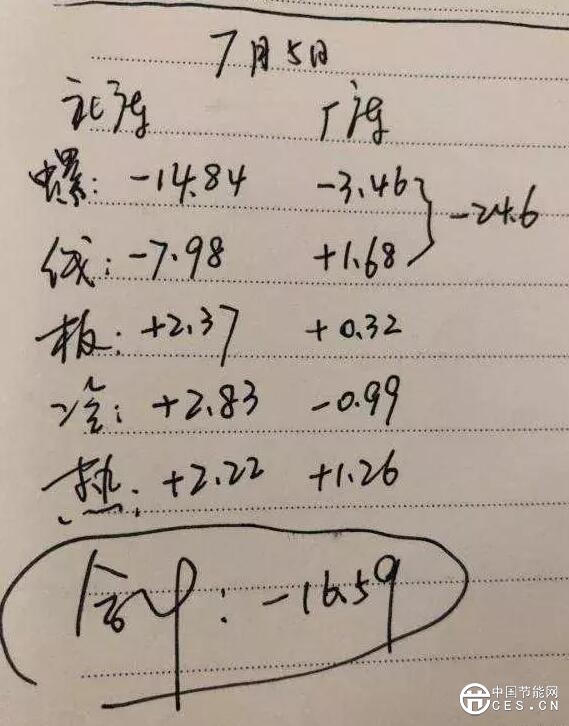 7月5日
社库 厂库
螺: -14.84 -3.46
线: -7.98 +1.68 } -24.6
板: +2.37 +0.32
冷: +2.83 -0.99
热: +2.22 +1.26
合计: -16.59
中国节能网
CES.CN